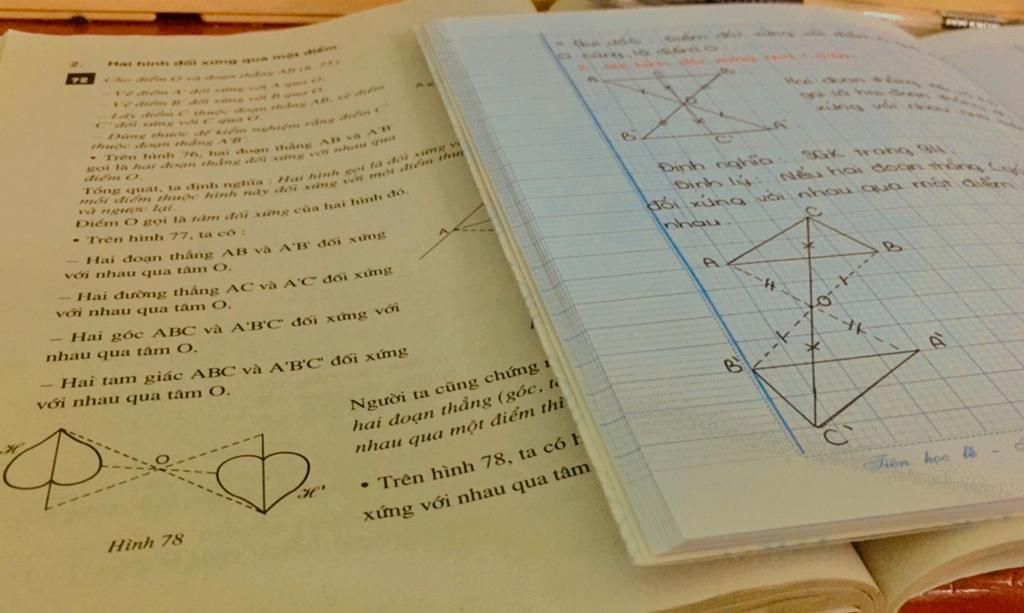 2. Hai hình đối xứng qua một điểm
?2 Cho điểm O và đoạn thẳng AB (h. 75)
– Vẽ điểm A' đối xứng với A qua O.
– Vẽ điểm B' đối xứng với B qua O.
– Lấy điểm C thuộc đoạn thẳng AB, vẽ điểm
C' đối xứng với C qua O.
– Dùng thước để kiểm nghiệm rằng điểm C'
thuộc đoạn thẳng A'B'.
• Trên hình 76, hai đoạn thẳng AB và A'B'
gọi là hai đoạn thẳng đối xứng với nhau qua
điểm O.
Tổng quát, ta định nghĩa : Hai hình gọi là đối xứng
mỗi điểm thuộc hình này đối xứng với một điểm
và ngược lại.
Điểm O gọi là tâm đối xứng của hai hình đó.
• Trên hình 77, ta có :
– Hai đoạn thẳng AB và A'B' đối xứng
với nhau qua tâm O.
– Hai đường thẳng AC và A'C' đối xứng
với nhau qua tâm O.
– Hai góc ABC và A'B'C' đối xứng với
nhau qua tâm O.
– Hai tam giác ABC và A'B'C' đối xứng
với nhau qua tâm O.
H
O
H'
Hình 78
A
A
Người ta cũng chứng
hai đoạn thẳng (góc,
nhau qua một điểm thì
• Trên hình 78, ta có
xứng với nhau qua tâm
O cũng là điểm O
A
B
O
B'
C'
A'
Hai đoạn thẳng
gọi là hai đoạn thẳng
xứng với nhau
Định nghĩa: SGK trang 94.
Định lý: Nếu hai đoạn thẳng
đối xứng với nhau qua một điểm
nhau.
C
A
B
O
B'
A'
C'
Tiên học lễ -